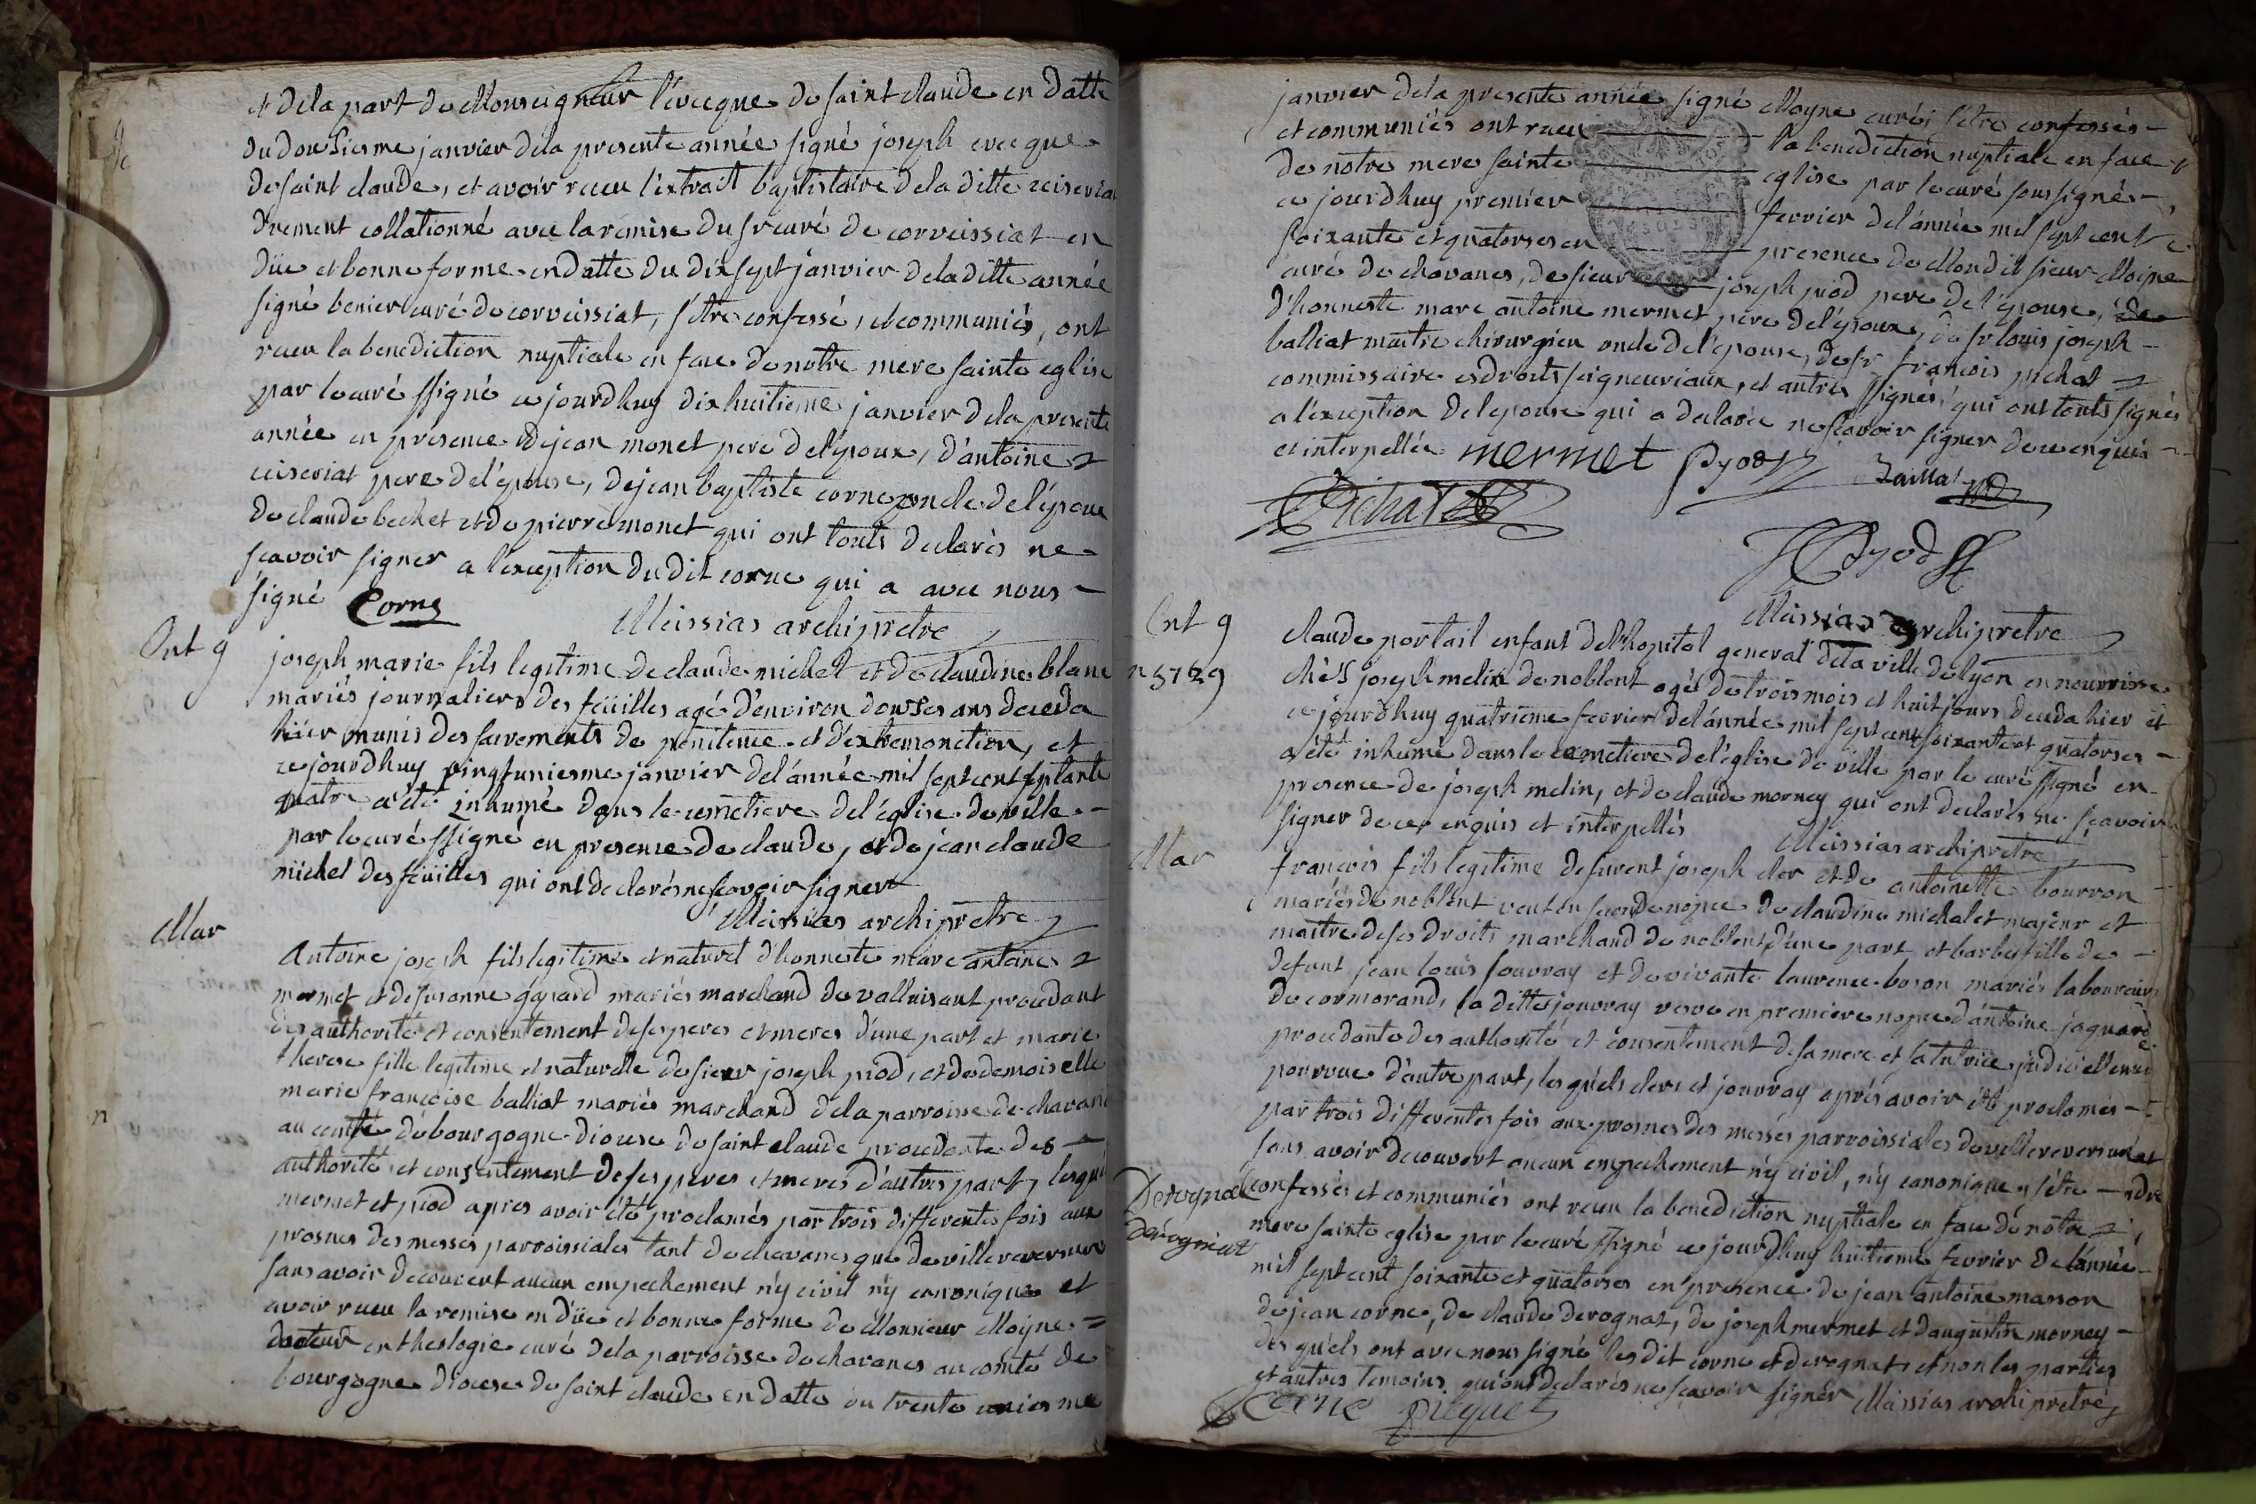 et dela part de Monseigneur l'évecque de saint claude en datte
du dousiesme janvier dela presente année signé joseph evecque
de saint claude, et avoir receu l'extrait baptistaire dela ditte ceiseriat
duement collationné avec la remise du sr curé de corveissiat en
düe et bonne forme en datte du dix sept janvier dela ditte année
signé benier curé de corveissiat, s'être confessé, et communiés, ont
receu la benediction nuptiale en face de notre mere sainte eglise
par le curé ssigné ce jourdhuy dixhuitieme janvier dela presente
année en presence de jean monet pere del'epoux, d'antoine
ceiseriat pere del'epouse, de jean baptiste corne oncle de l'epoux
de claude bechet et de pierre monet qui ont touts declarés ne
scavoir signer a l'exception du dit corne qui a avec nous
signé Corne
Meissias archipretre
Ent g
joseph marie fils legitime de claude michel et de claudine blanc
mariés journaliers des feüilles agé d'environ douses ans deceda
hiér munis des sacrements de penitence et d'extremonction, et
ce jourdhuy vingtuniesme janvier del'année mil sept cent septante
quatre a été inhumé dans le cemetiere del'église de ville
par le curé ssigné en presence de claude, et de jean claude
michel des feüilles qui ont declarés ne scavoir signer
Meissias archipretre
Mar
Antoine joseph fils legitime et naturel d'honneste marc antoine
mermet et de susanne gayard mariés marchand de valluisant procedant
des authorité et consentement de ses peres et meres d'une part et marie
therese fille legitime et naturelle de sieur joseph piod, et de demoiselle
marie françoise balliat mariés marchand dela parroisse de chavane
au comté de bourgogne diocese de saint claude procedante des
authorité et consentement de ses peres et meres d'autres part, lesquels
mermet et piod apres avoir été proclamés par trois differentes fois aux
prosnes des messes parroissiales tant de chavanes que de villereversure
sans avoir decouvert aucun empechement n'y civil n'y canonique et
avoir receu la remise en düe et bonne forme de Monsieur Moyne
docteur en theologie curé dela parroisse de chavanes au comté de
bourgogne diocese de saint claude en datte du trente uniesme
janvier dela presente année signé Moyne curé, s'être confessés
et communiés ont receu la benediction nuptiale en face
de notre mere sainte eglise par le curé soussigné
ce jourdhuy premier fevrier del'année mil sept cent
soixante et quatorses en presence de Mondit sieur Moine
curé de chavanes, de sieur joseph piod pere de l'epouse, de
d'honneste marc antoine mermet pere del'epoux, de sr louis joseph
balliat maitre chirurgien oncle de l'epouse, de sr françois pichat
commissaire es droits seigneuriaux, et autres ssignés, qui ont touts signés
a l'exception del'epouse qui a declarée ne scavoir signer de ce enquise
et interpellée mermet Pyod Bailliat
Pichat
Pyod
Meissias archipretre
Ent g
n 5729
claude portail enfant del'hopital general dela ville de lyon en nourrisse
chés joseph melin de noblent agé de trois mois et huit jours deceda hier et
ce jourdhuy quatrieme fevrier del'année mil sept cent soixante et quatorses
a été inhumé dans le cemetiere del'église de ville par le curé ssigné en
presence de joseph melin, et de claude morney qui ont declarés ne scavoir
signer de ce enquis et interpellés
Meissias archipretre
Mar
françois fils legitime de furent joseph cler et de antoinette bourron
mariés de noblent veuf en seconde nopce de claudine michalet majeur et
maitre de ses droits marchand de noblent d'une part et barbe fille de
defunt jean louis jouvray et de vivante laurence boson mariés laboureurs
de cormorand, la ditte jouvray veuve en premiere nopce d'antoine jaquard
procedante des authorité et consentement de sa mere et sa tutrice judiciellement
pourvue d'autre part, les quels clers et jouvray aprés avoir été proclamés
par trois differentes fois aux prosnes des messes parroissiales de villereversure
sans avoir decouvert aucun empechement n'y civil, n'y canonique, s'être
Derognat
Derogniat
confessés et communiés ont receu la benediction nuptiale en face de notre
mere sainte eglise par le curé ssigné ce jourdhuy huitieme fevrier de l'année
mil sept cent soixante et quatorses en presence de jean antoine manon
de jean corne, de claude derognat, de joseph mermet et d'augustin morney
des quels ont avec nous signé les dit corne et derognat, et non les parties
et autres temoins qui ont declarés ne scavoir signer Meissias archipretre
Corne